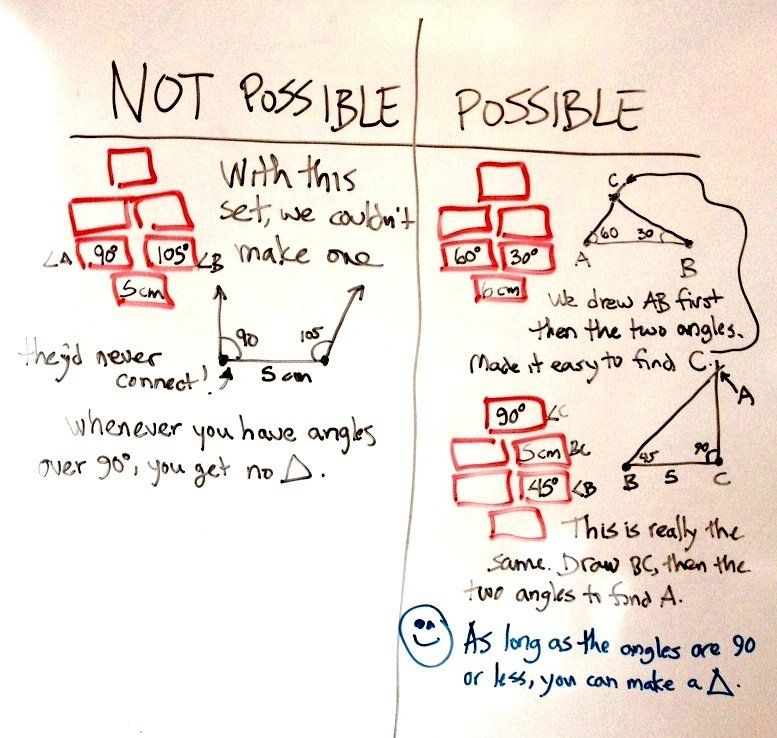 NOT POSSIBLE
With this
set, we couldn't
make one
∠A 90° 105° ∠B
5cm
90 105
5 cm
they'd never
connect!
whenever you have angles
over 90°, you get no △.
POSSIBLE
60° 30°
6cm
C
60 30
A B
We drew AB first
then the two angles.
Made it easy to find C.
90° ∠C
5cm BC
45° ∠B
A
45 90
B 5 C
This is really the
same. Draw BC, then the
two angles to find A.
As long as the angles are 90
or less, you can make a △.